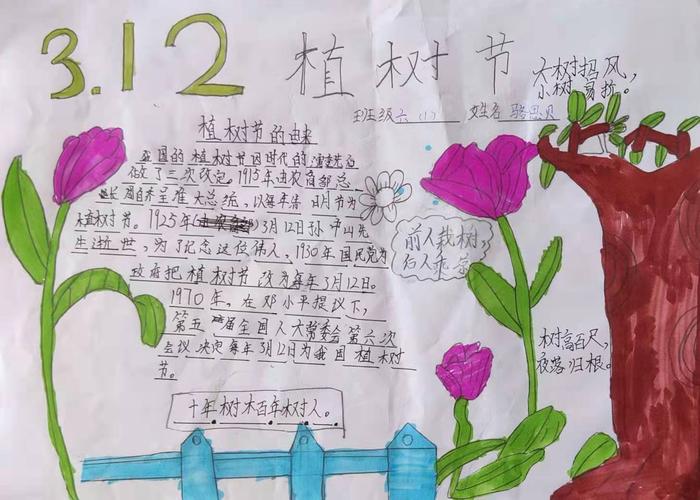 3.12 植树节
大树招风,
小树易折。
班级六(1) 姓名 骆思贝
植树节的由来
我国的植树节因时代的演变先后
做了三次改定。1915年由农商部总
长周自齐呈准大总统,以每年清明节为
植树节。1925年3月12日孙中山先
生逝世,为了纪念这位伟人,1930年国民党为
政府把植树节改为每年3月12日。
1970年,在邓小平提议下,
第五届全国人大常委会第六次
会议决定每年3月12日为我国植树
节。
前人栽树,
后人乘
树高百尺,
落归根。
十年树木百年树人。